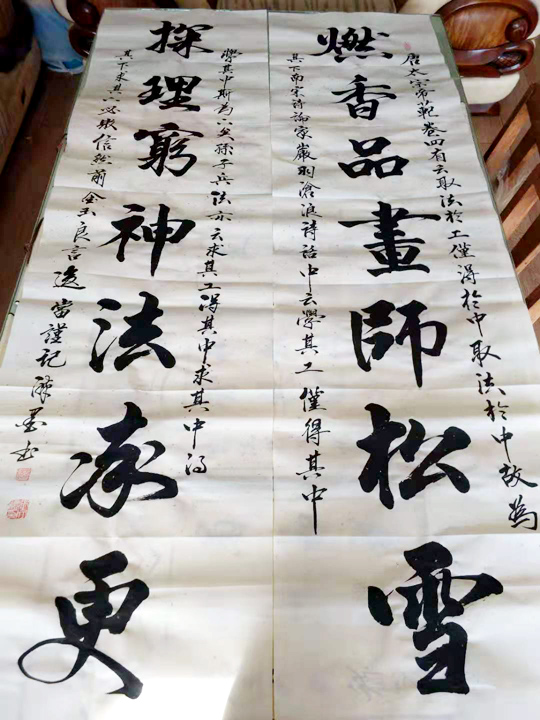 燃香品畫師松雪
唐太宗帝範卷四有云取法於上僅得於中取法於中故為
其下南宋詩論家嚴羽滄浪詩話中云學其上僅得其中
學其中斯為下矣孫子兵法亦云求其上得其中求其中得
探理窮神法率更
其下求其下必敗信然前金玉良言當謹記